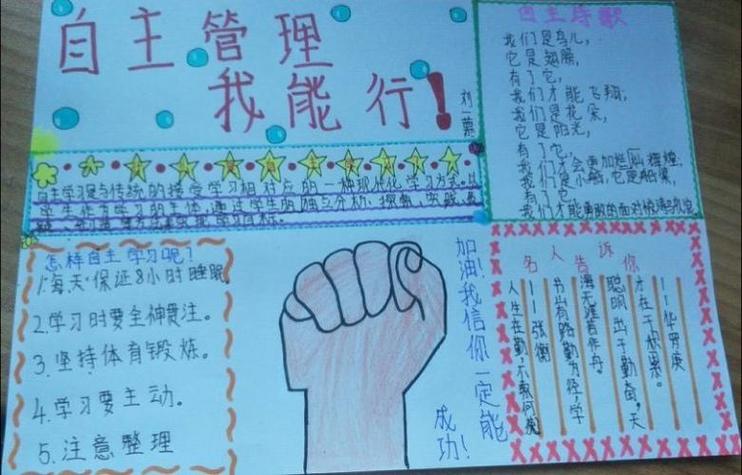 自主管理
我能行！
刘一蕙
自主学习是与传统的接受学习相对应的一种现代化学习方式。以
学生作为学习的主体，通过学生的独立分析、探索、实践、质
怎样自主学习呢？
1.每天保证8小时睡眠
2.学习时要全神贯注。
3.坚持体育锻炼。
4.学习要主动。
5.注意整理
加油！我信你一定能
成功！
自主诗歌
我们是鸟儿，
它是翅膀，
有了它，
我们才能飞翔；
我们是花朵，
它是阳光，
有了它，
我们才会更加辉煌；
我们是小船，它是船桨，
有了它，
我们才能勇敢的面对
名人告诉你
——华罗庚
才在于积累。
聪明出于勤奋，天
海无涯苦作舟。
书山有路勤为径，学
——张衡
人生在勤，不索何获